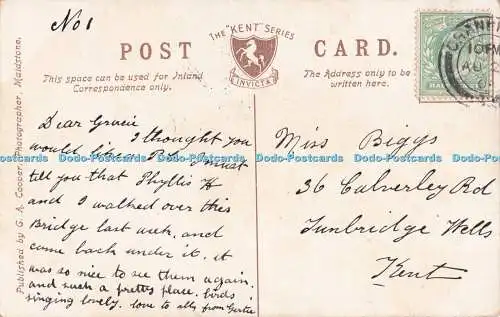 No 1
THE "KENT" SERIES
INVICTA
POST CARD.
This space can be used for Inland
Correspondence only.
The Address only to be
written here.
Published by G. A. Cooper, Photographer, Maidstone.
Dear Gracie
I thought you
would like a P.C. I must
tell you that Phyllis H
and I walked over this
Bridge last week, and
came back under it. it
was so nice to see them again.
and such a pretty place. birds
singing lovely. love to all from Gertie
Miss Biggs
36 Calverley Rd
Tunbridge Wells
Kent
CRANBR
Dodo-Postcards Dodo-Postcards Dodo-Postcards Dodo-Postcards Dodo-Postcards Dodo-Postcards